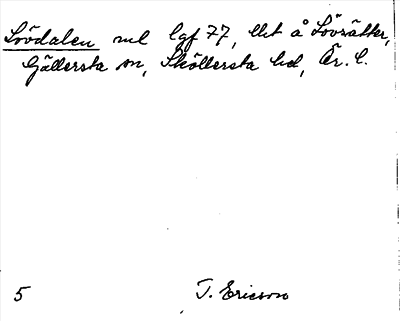 Lövdalen rml lgf 77, lht å Lövsätter,
Gällersta sn, Sköllersta hd, Ör. l.
5 T. Ericson